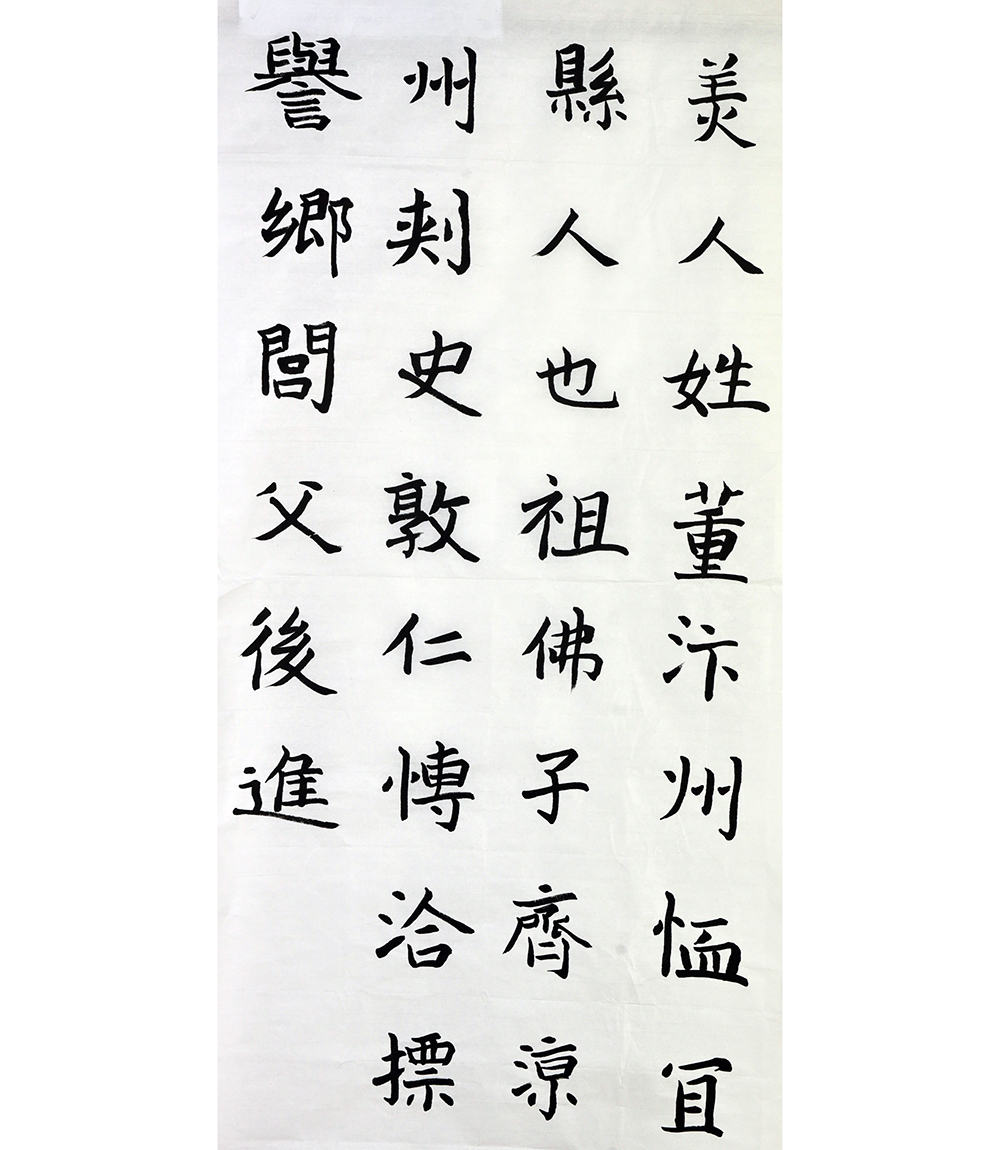 美人姓董汴州恤冝
縣人也祖佛子齊涼
州刾史敦仁愽洽摽
譽鄉閭父後進